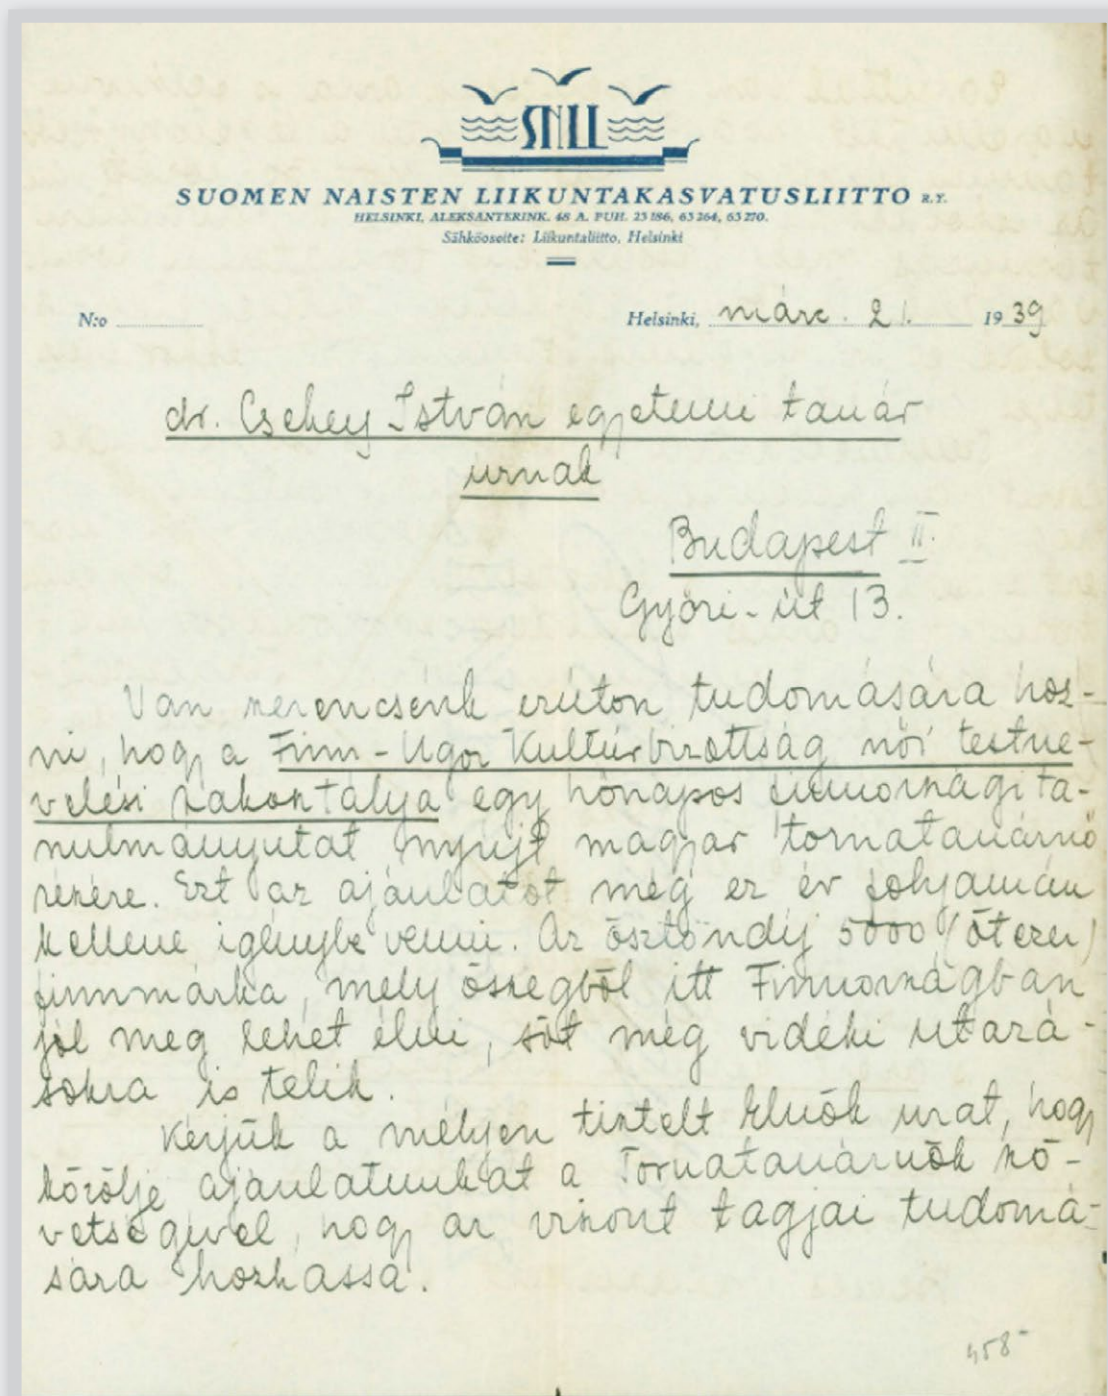 SNLL
SUOMEN NAISTEN LIIKUNTAKASVATUSLIITTO R.Y.
HELSINKI, ALEKSANTERINK. 48 A. PUH. 23186, 63264, 63270.
Sähköosoite: Liikuntaliitto, Helsinki
N:o
Helsinki, márc. 21. 1939
dr. Csekey István egyetemi tanár
urnak
Budapest II.
Györi-út 13.
Van szerencsénk ezúton tudomására hoz-
ni, hogy a Finn-Ugor Kultúrbizottság női testne-
velési szakosztálya egy hónapos finnországi ta-
nulmányutat nyujt magyar tornatanárnő
részére. Ezt az ajánlatot még ez év folyamán
kellene igénybe venni. Az ösztöndíj 5000 (ötezer)
finnmárka, mely összegből itt Finnországban
jól meg lehet élni, sőt még vidéki utazá-
sokra is telik.
Kérjük a mélyen tisztelt Elnök urat, hogy
közölje ajánlatunkat a Tornatanárnők szö-
vetségével, hogy az viszont tagjai tudomá-
sára hozhassa.
458